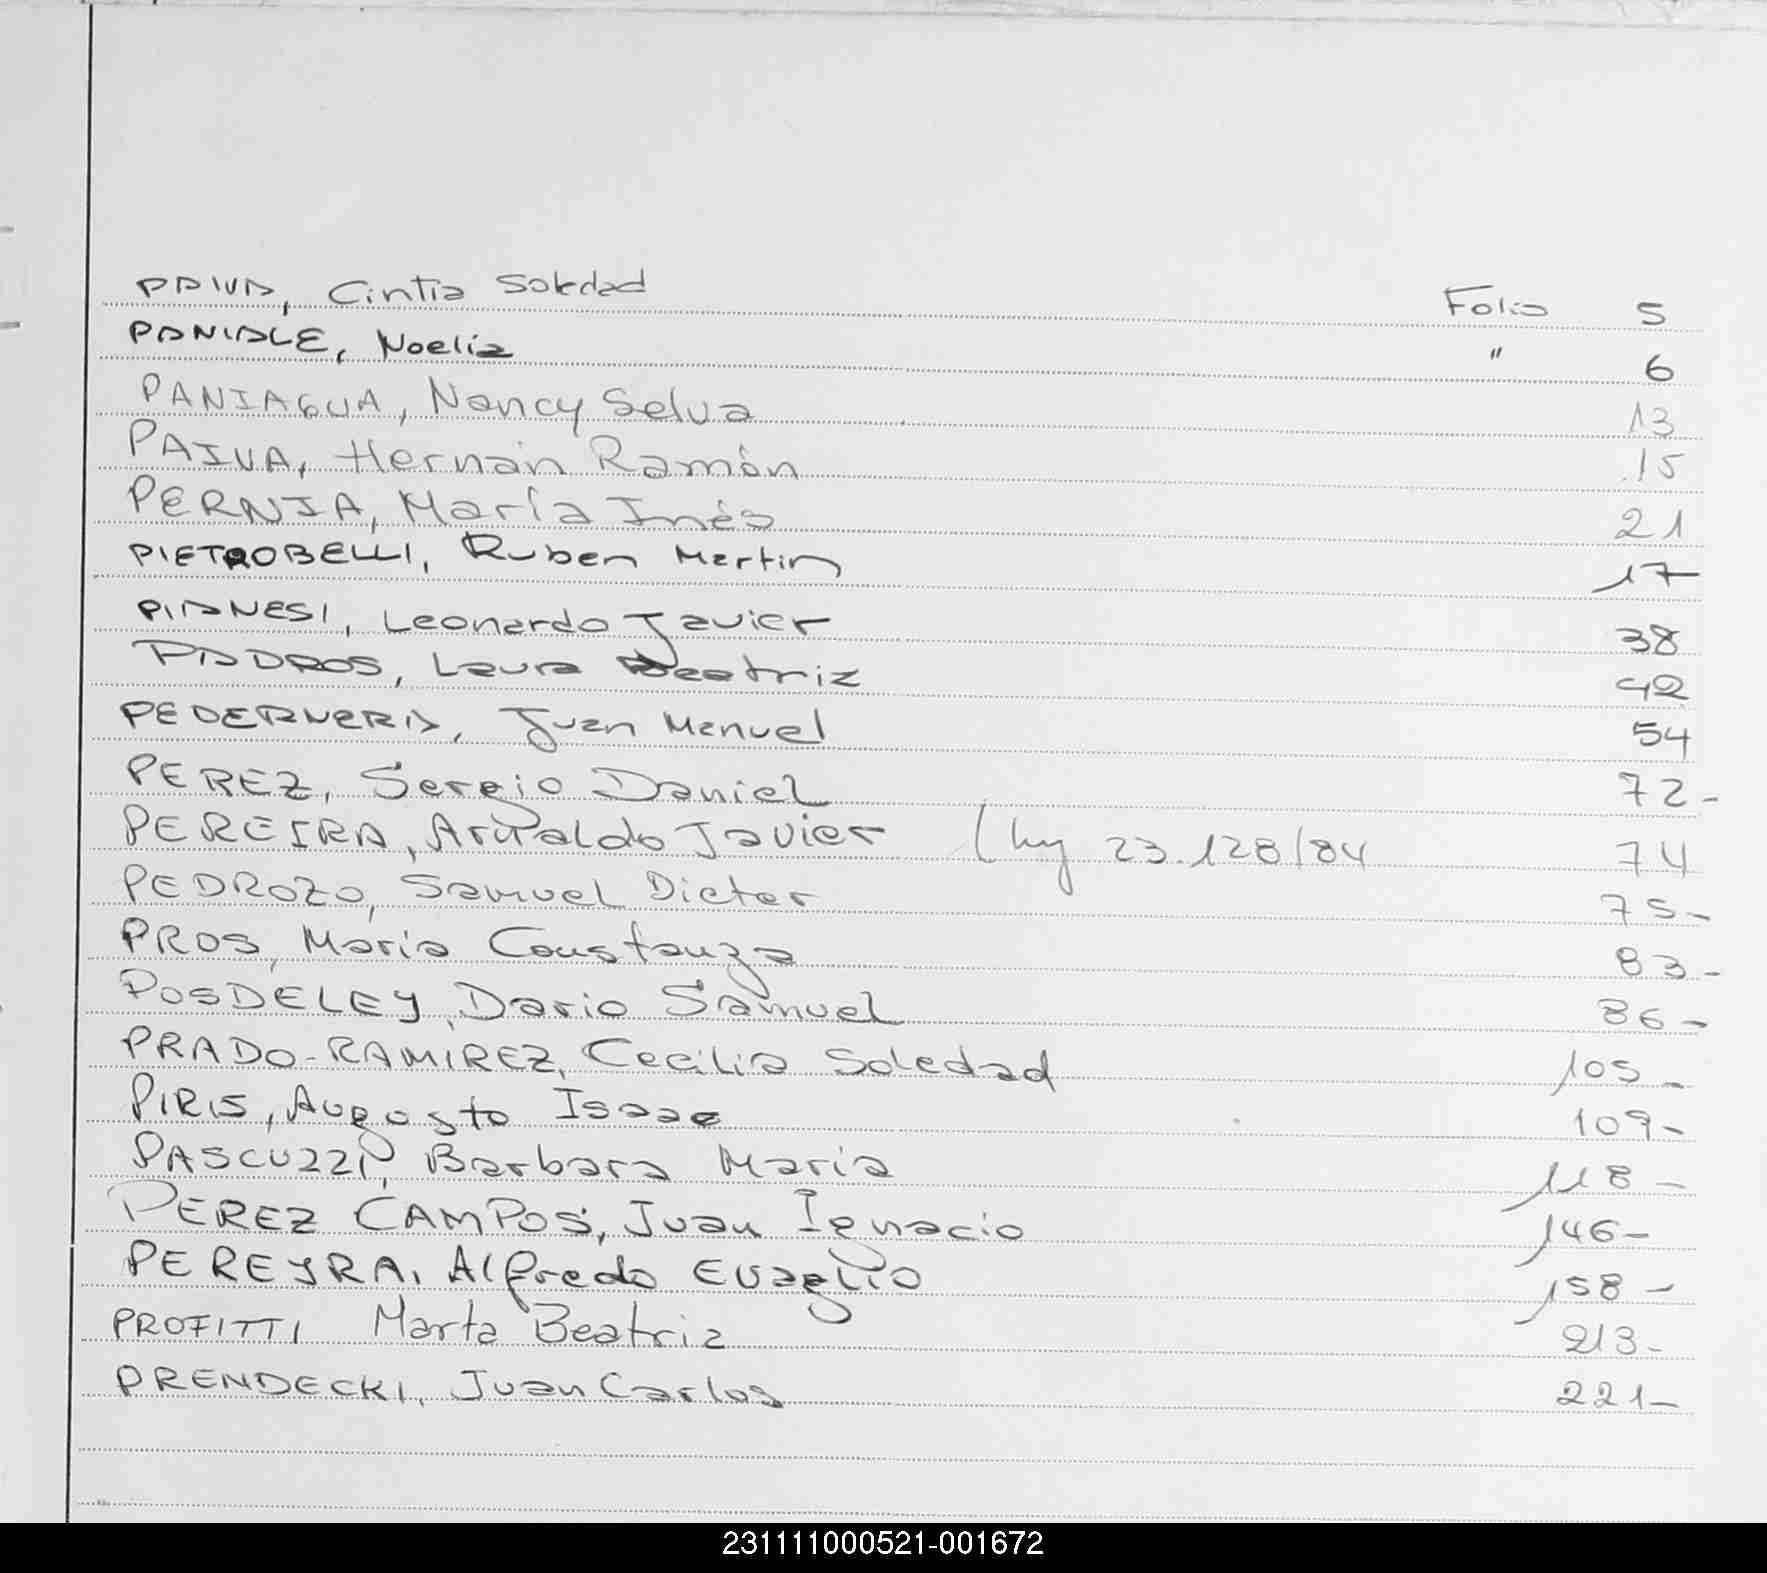 PAIVA, Cintia Soledad Folio 5
PANIALE, Noelia " 6
PANIAGUA, Nancy Selva 13
PAIVA, Hernán Ramón 15
PERNIA, María Inés 21
PIETROBELLI, Ruben Martin 17
PIANESI, Leonardo Javier 38
PADROS, Laura Beatriz 42
PEDERNERA, Juan Manuel 54
PEREZ, Sergio Daniel 72-
PEREIRA, Arnaldo Javier (ley 23.128/84 74
PEDROZO, Samuel Dieter 75-
PROS, Maria Constanza 83-
POSDELEY, Dario Samuel 86-
PRADO-RAMIREZ, Cecilia Soledad 105-
PIRIS, Augusto Isaac 109-
PASCUZZI, Barbara Maria 118-
PEREZ CAMPOS, Juan Ignacio 146-
PEREYRA, Alfredo Evaglio 158-
PROFITTI Marta Beatriz 213-
PRENDECKI, Juan Carlos 221-
231111000521-001672